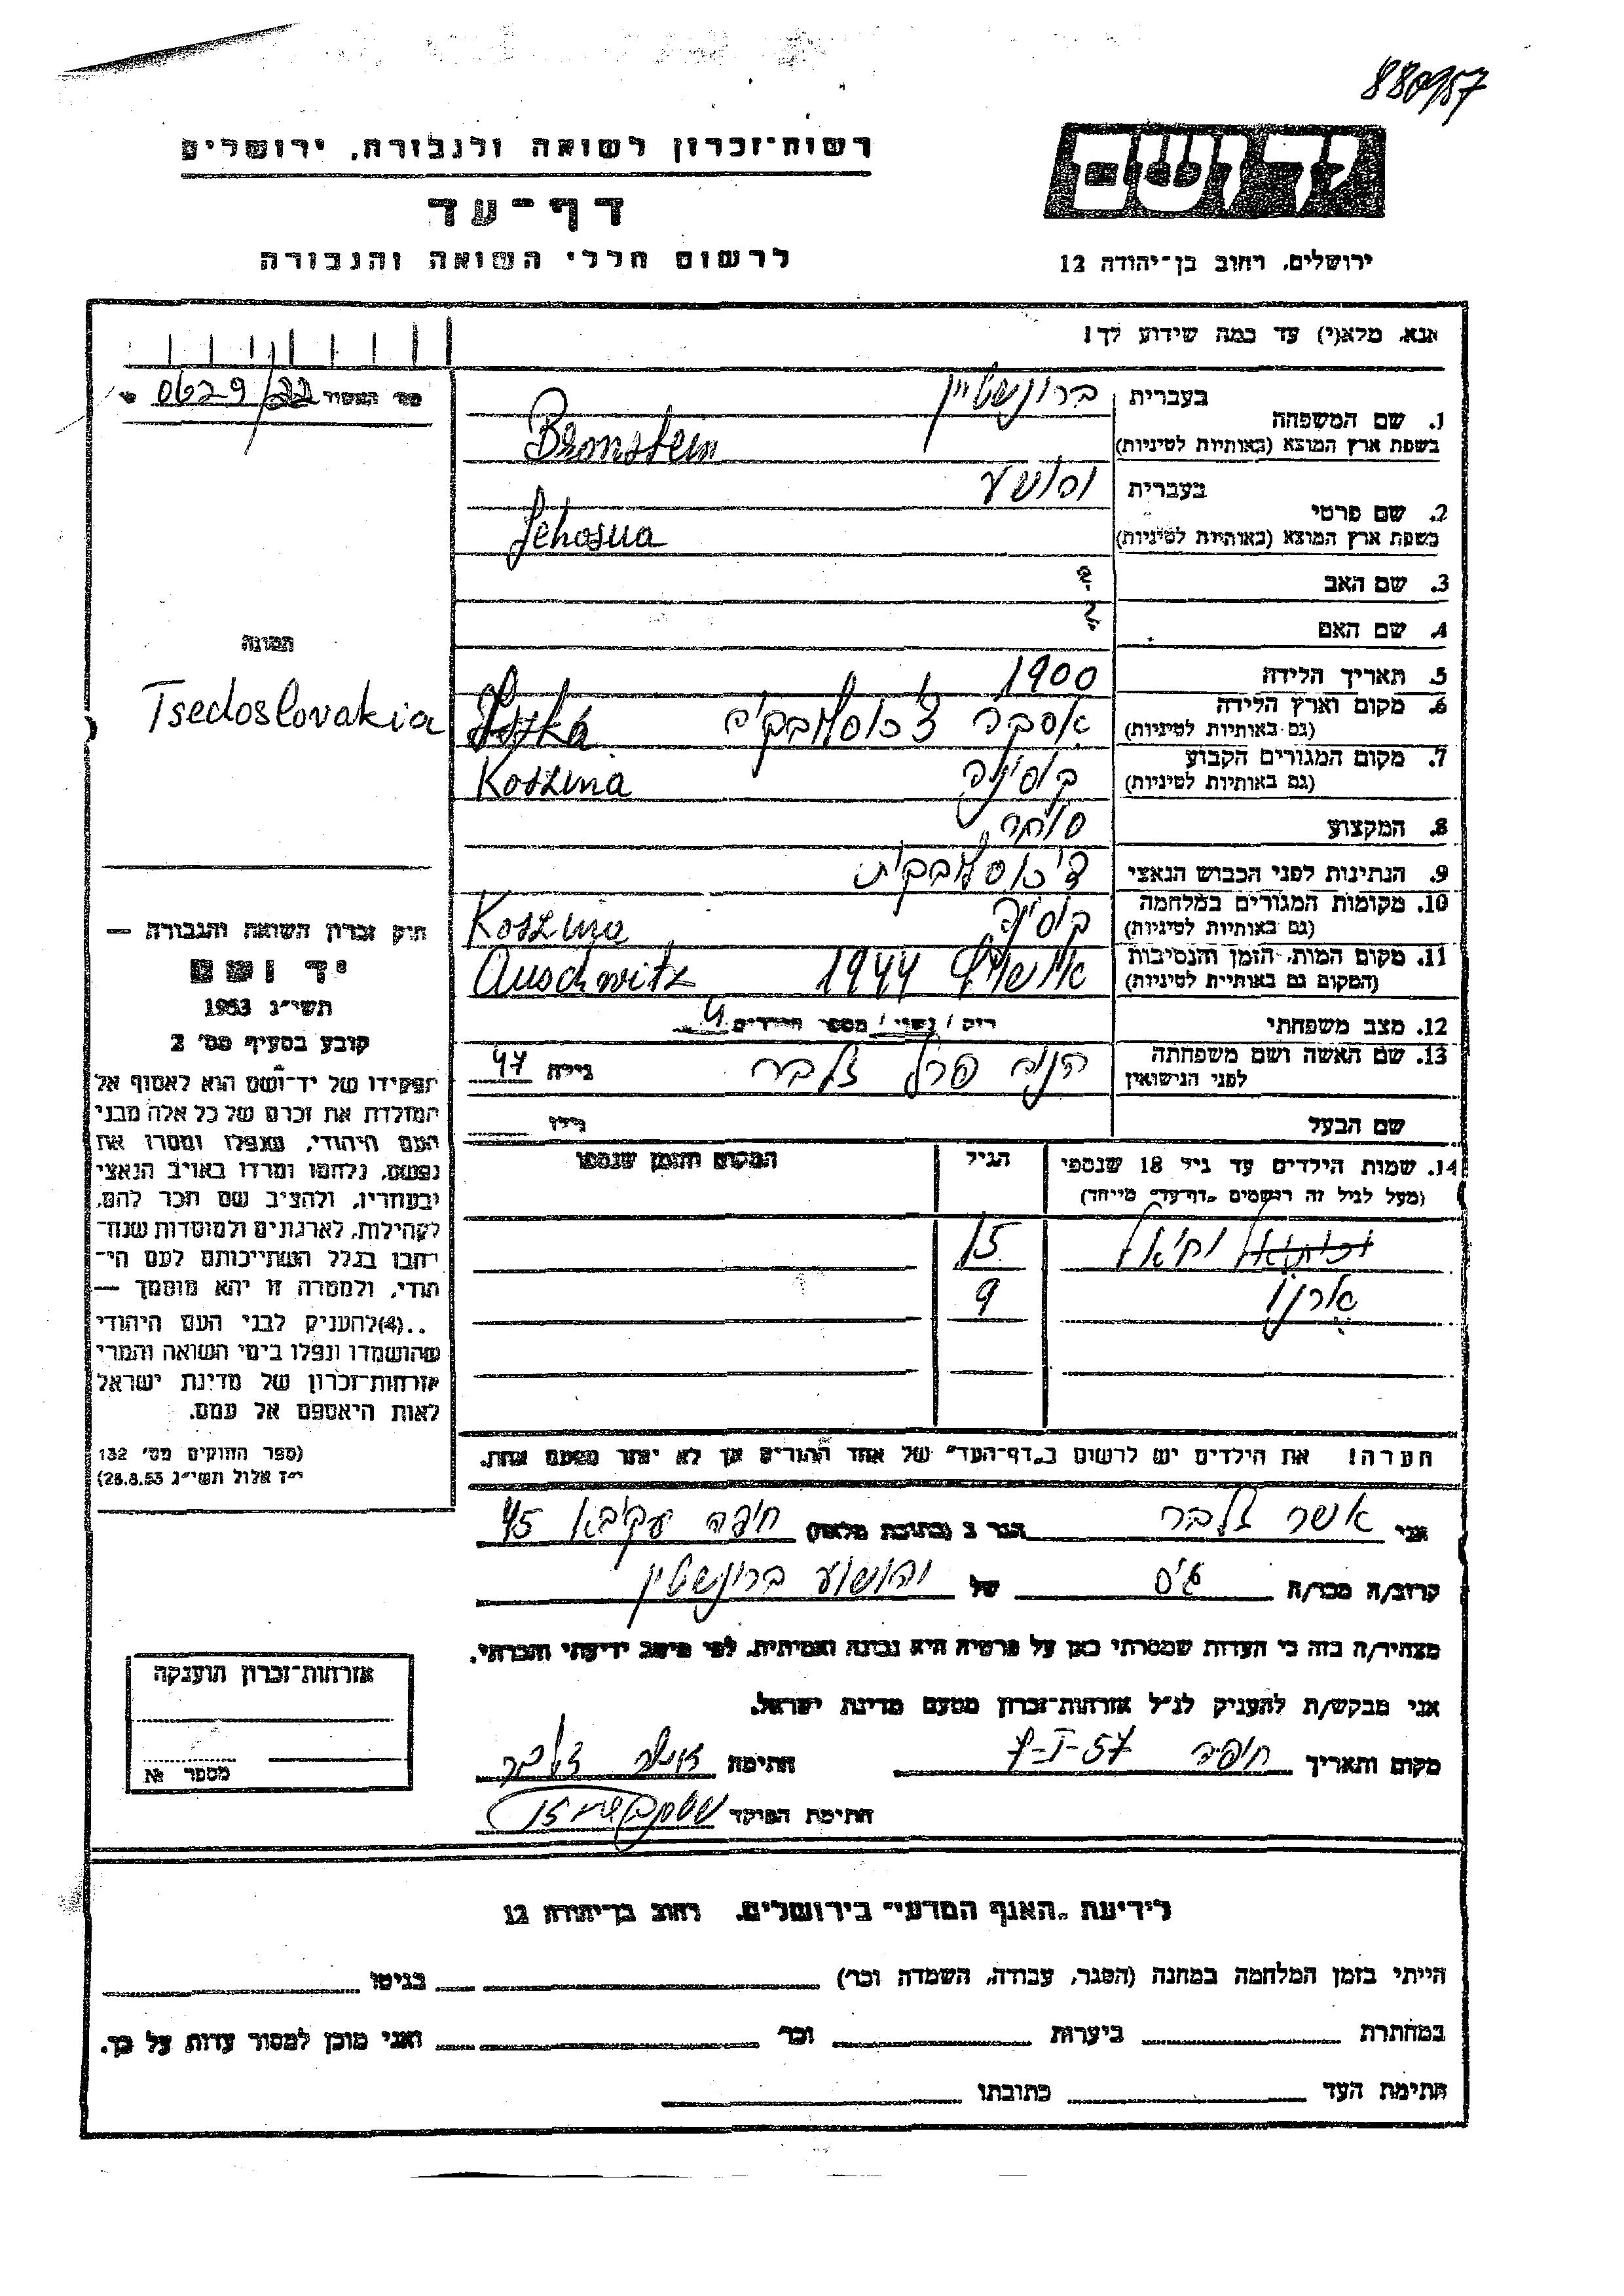 880/57
רשות־זכרון לשואה ולגבורה, ירושלים
יד ושם
דף־עד
לרשום חללי השואה והגבורה
ירושלים, רחוב בן־יהודה 12
אנא, מלא(י) עד כמה שידוע לך!
0629/22
1. שם המשפחה בעברית ברונשטיין
בשפת ארץ המוצא (באותיות לטיניות) Bronstein
2. שם פרטי בעברית יהושע
בשפת ארץ המוצא (באותיות לטיניות) Jehosua
3. שם האב ?
4. שם האם ?
5. תאריך הלידה 1900
6. מקום וארץ הלידה
(גם באותיות לטיניות)
תמונה
Tsedoslovakia
7. מקום המגורים הקבוע
(גם באותיות לטיניות) Koszina
8. המקצוע סוחר
9. הנתינות לפני הכבוש הנאצי
10. מקומות המגורים במלחמה
(גם באותיות לטיניות) Koszina
11. מקום המות, הזמן והנסיבות 1944 Auschwitz
(המקום גם באותיות לטיניות)
12. מצב משפחתי רוק / נשוי / מספר הילדים 4
13. שם האשה ושם משפחתה
לפני הנישואין הנה פרל זלבר גילה 47
שם הבעל גילו
14. שמות הילדים עד גיל 18 שנספו הגיל המקום והזמן שנספו
(מעל לגיל זה רושמים "דף־עד" מיוחד)
15
9
הערה! את הילדים יש לרשום ב"דף־העד" של אחד ההורים אך לא יותר מפעם אחת.
חוק זכרון השואה והגבורה —
יד ושם
תשי"ג 1953
קובע בסעיף מס' 2
תפקידו של יד־ושם הוא לאסוף אל
המולדת את זכרם של כל אלה מבני
העם היהודי, שנפלו ומסרו את
נפשם, נלחמו ומרדו באויב הנאצי
ובעוזריו, ולהציב שם וזכר להם,
לקהילות, לארגונים ולמוסדות שנח־
רבו בגלל השתייכותם לעם הי־
הודי, ולמטרה זו יהא מוסמך —
..(4) להעניק לבני העם היהודי
שהושמדו ונפלו בימי השואה והמרי
אזרחות־זכרון של מדינת ישראל
לאות היאספם אל עמם.
(ספר החוקים מס' 132
י"ז אלול תשי"ג 28.8.53)
אני אשר זלבר הגר ב (כתובת מלאה) חיפה עקיבא 45
קרוב/ה מכר/ה גיס של יהושע ברונשטיין
מצהיר/ה בזה כי העדות שמסרתי כאן על פרטיה היא נכונה ואמיתית, לפי מיטב ידיעתי והכרתי.
אני מבקש/ת להעניק לנ"ל אזרחות־זכרון מטעם מדינת ישראל.
מקום ותאריך חיפה 7-I-57 חתימה אשר זלבר
חתימת הפוקד
אזרחות־זכרון הוענקה
מספר №
לידיעת "האגף המדעי" בירושלים, רחוב בן־יהודה 12
הייתי בזמן המלחמה במחנה (הסגר, עבודה, השמדה וכו') בגיטו
במחתרת ביערות וכו' ואני מוכן למסור עדות על כך.
חתימת העד כתובתו